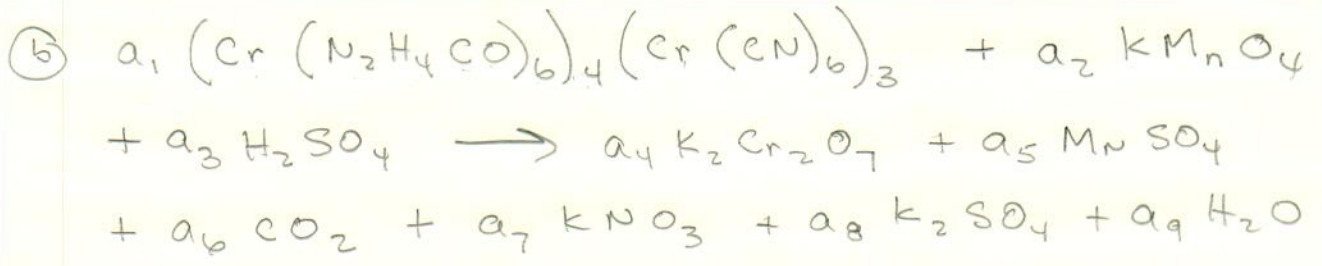 ⓑ a₁ (Cr (N₂H₄CO)₆)₄ (Cr (CN)₆)₃ + a₂ KMnO₄
+ a₃ H₂SO₄ → a₄ K₂Cr₂O₇ + a₅ MnSO₄
+ a₆ CO₂ + a₇ KNO₃ + a₈ K₂SO₄ + a₉ H₂O